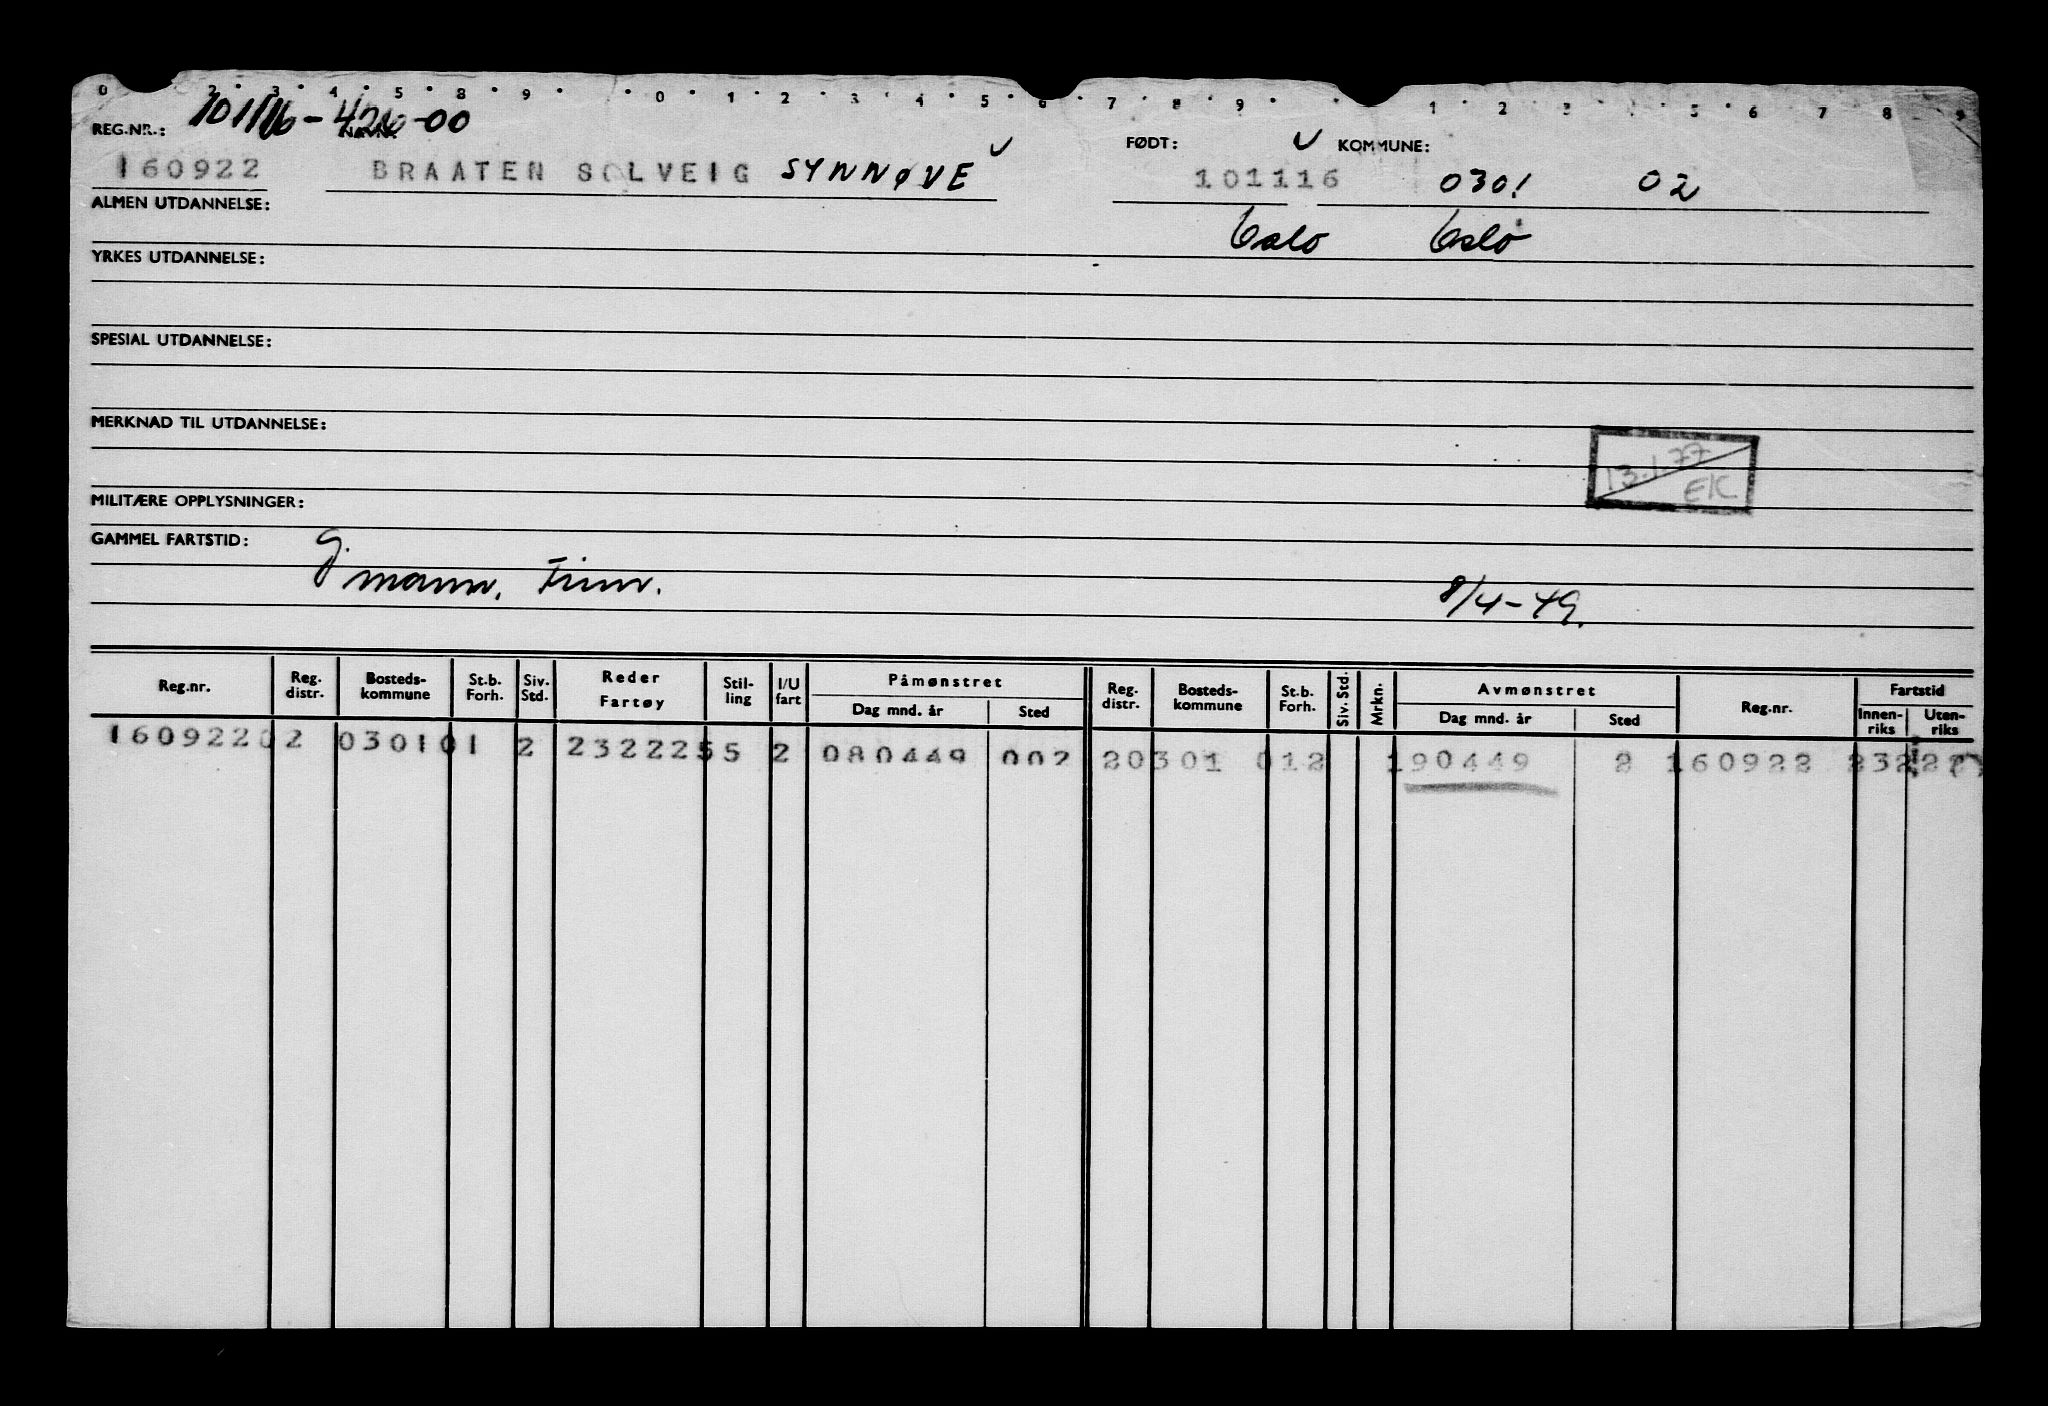 0 2 3 4 5 8 9 0 1 2 3 4 5 6 7 8 9 1 2 3 4 5 6 7 8 9
101116-426-00
REG.NR.: NAVN: FØDT: KOMMUNE:
160922 BRAATEN SOLVEIG SYNNØVE 101116 0301 02
ALMEN UTDANNELSE: Oslo Oslo
YRKES UTDANNELSE:
SPESIAL UTDANNELSE:
MERKNAD TIL UTDANNELSE:
13.1.77
EK
MILITÆRE OPPLYSNINGER:
GAMMEL FARTSTID:
8/4-49.
Reg.nr. Reg. distr. Bosteds-kommune St.b. Forh. Siv. Std. Reder Fartøy Stil-ling I/U fart Påmønstret Dag mnd. år Sted Reg. distr. Bosteds-kommune St.b. Forh. Siv. Std. Mrkn. Avmønstret Dag mnd. år Sted Reg.nr. Fartstid Innen-riks Uten-riks
160922 02 0301 01 2 232225 5 2 080449 002 20301 012 190449 2 160922